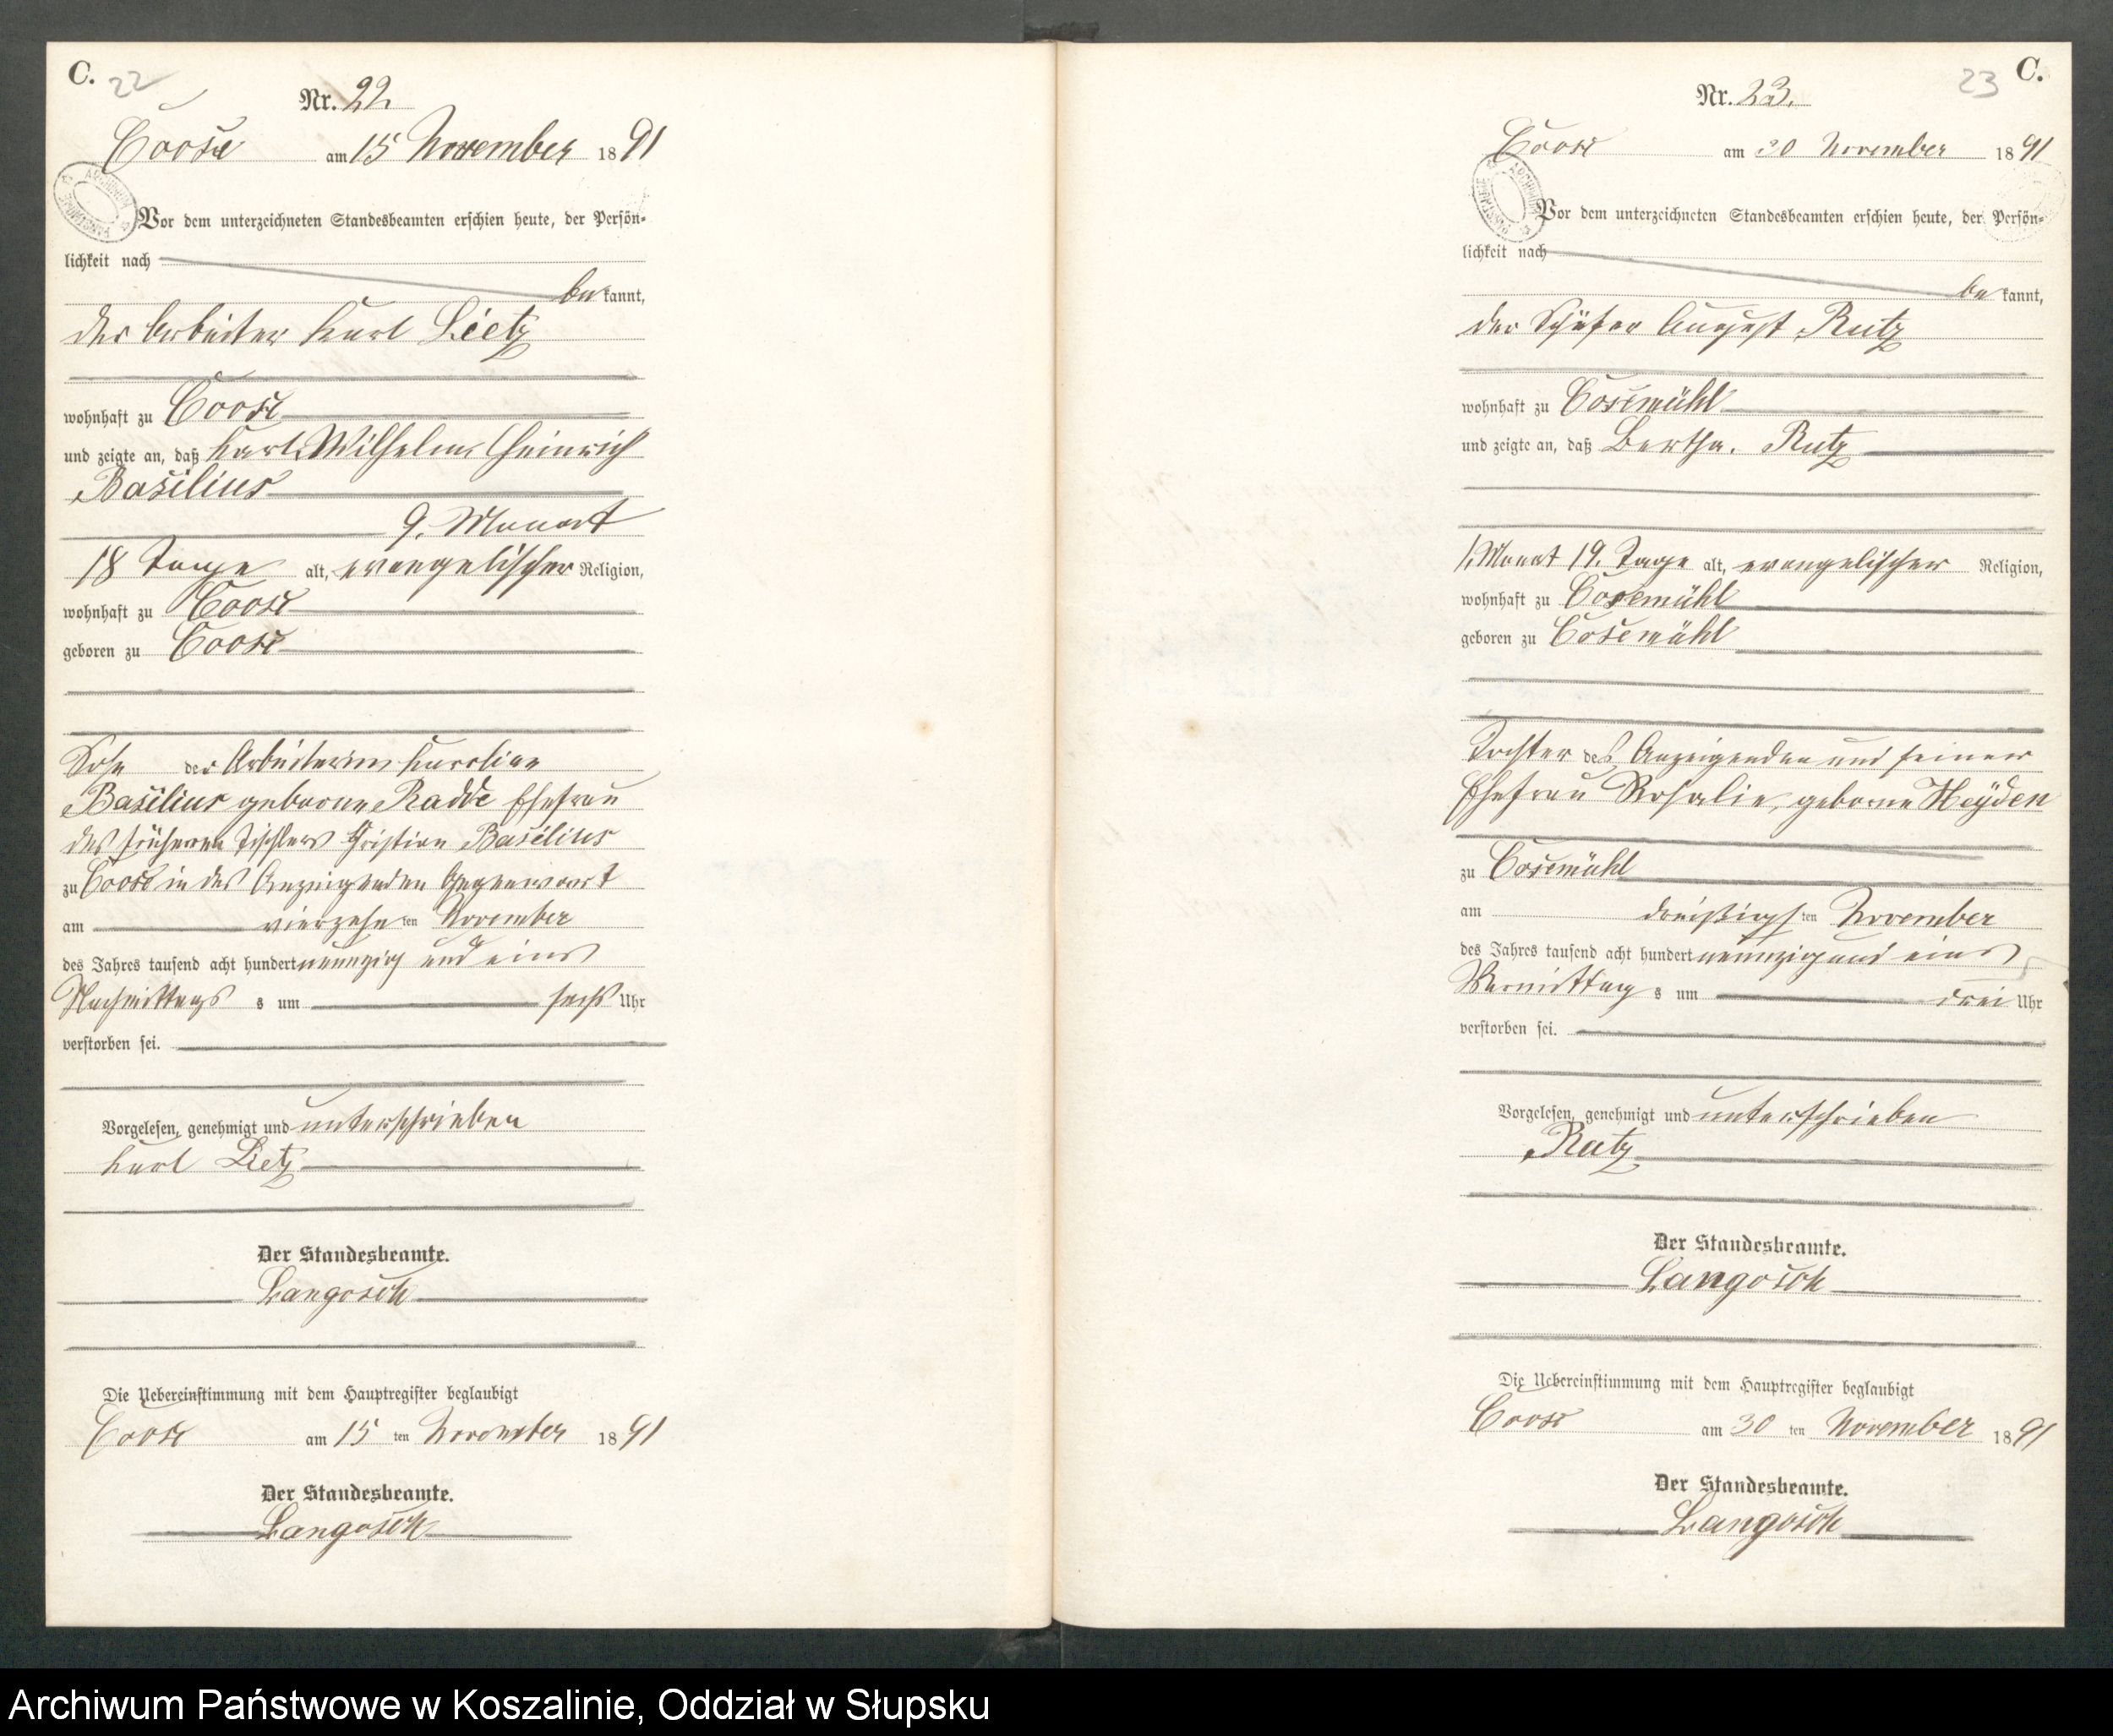 C. 22
Nr. 22
Coose am 15 November 1891
Vor dem unterzeichneten Standesbeamten erschien heute, der Persön-
lichkeit nach
be kannt,
der Arbeiter Karl Lietz
wohnhaft zu Coose
und zeigte an, daß Karl Wilhelm Heinrich
Basilius
9. Monat
18 Tage alt, evangelischer Religion,
wohnhaft zu Coose
geboren zu Coose
Sohn der Arbeiterin Karoline
Basilius geborne Radde Ehefrau
des früheren Tischlers Christian Basilius
zu Coose in des Anzeigenden Gegenwart
am vierzehn ten November
des Jahres tausend acht hundert neunzig und eins
Nachmittags s um sechs Uhr
verstorben sei.
Vorgelesen, genehmigt und unterschrieben
Karl Lietz
Der Standesbeamte.
Langosch
Die Uebereinstimmung mit dem Hauptregister beglaubigt
Coose am 15 ten November 1891
Der Standesbeamte.
Langosch
23 C.
Nr. 23.
Coose am 30 November 1891
Vor dem unterzeichneten Standesbeamten erschien heute, der Persön-
lichkeit nach
be kannt,
der Schäfer August Rutz
wohnhaft zu Cosemühl
und zeigte an, daß Bertha. Rutz
1. Monat 19. Tage alt, evangelischer Religion,
wohnhaft zu Cosemühl
geboren zu Cosemühl
Tochter des Anzeigenden und seiner
Ehefrau Rosalie, geborne Heyden
zu Cosemühl
am dreißigs ten November
des Jahres tausend acht hundert neunzig und eins
Vormittag s um drei Uhr
verstorben sei.
Vorgelesen, genehmigt und unterschrieben
Rutz
Der Standesbeamte.
Langosch
Die Uebereinstimmung mit dem Hauptregister beglaubigt
Coose am 30 ten November 1891
Der Standesbeamte.
Langosch
Archiwum Państwowe w Koszalinie, Oddział w Słupsku